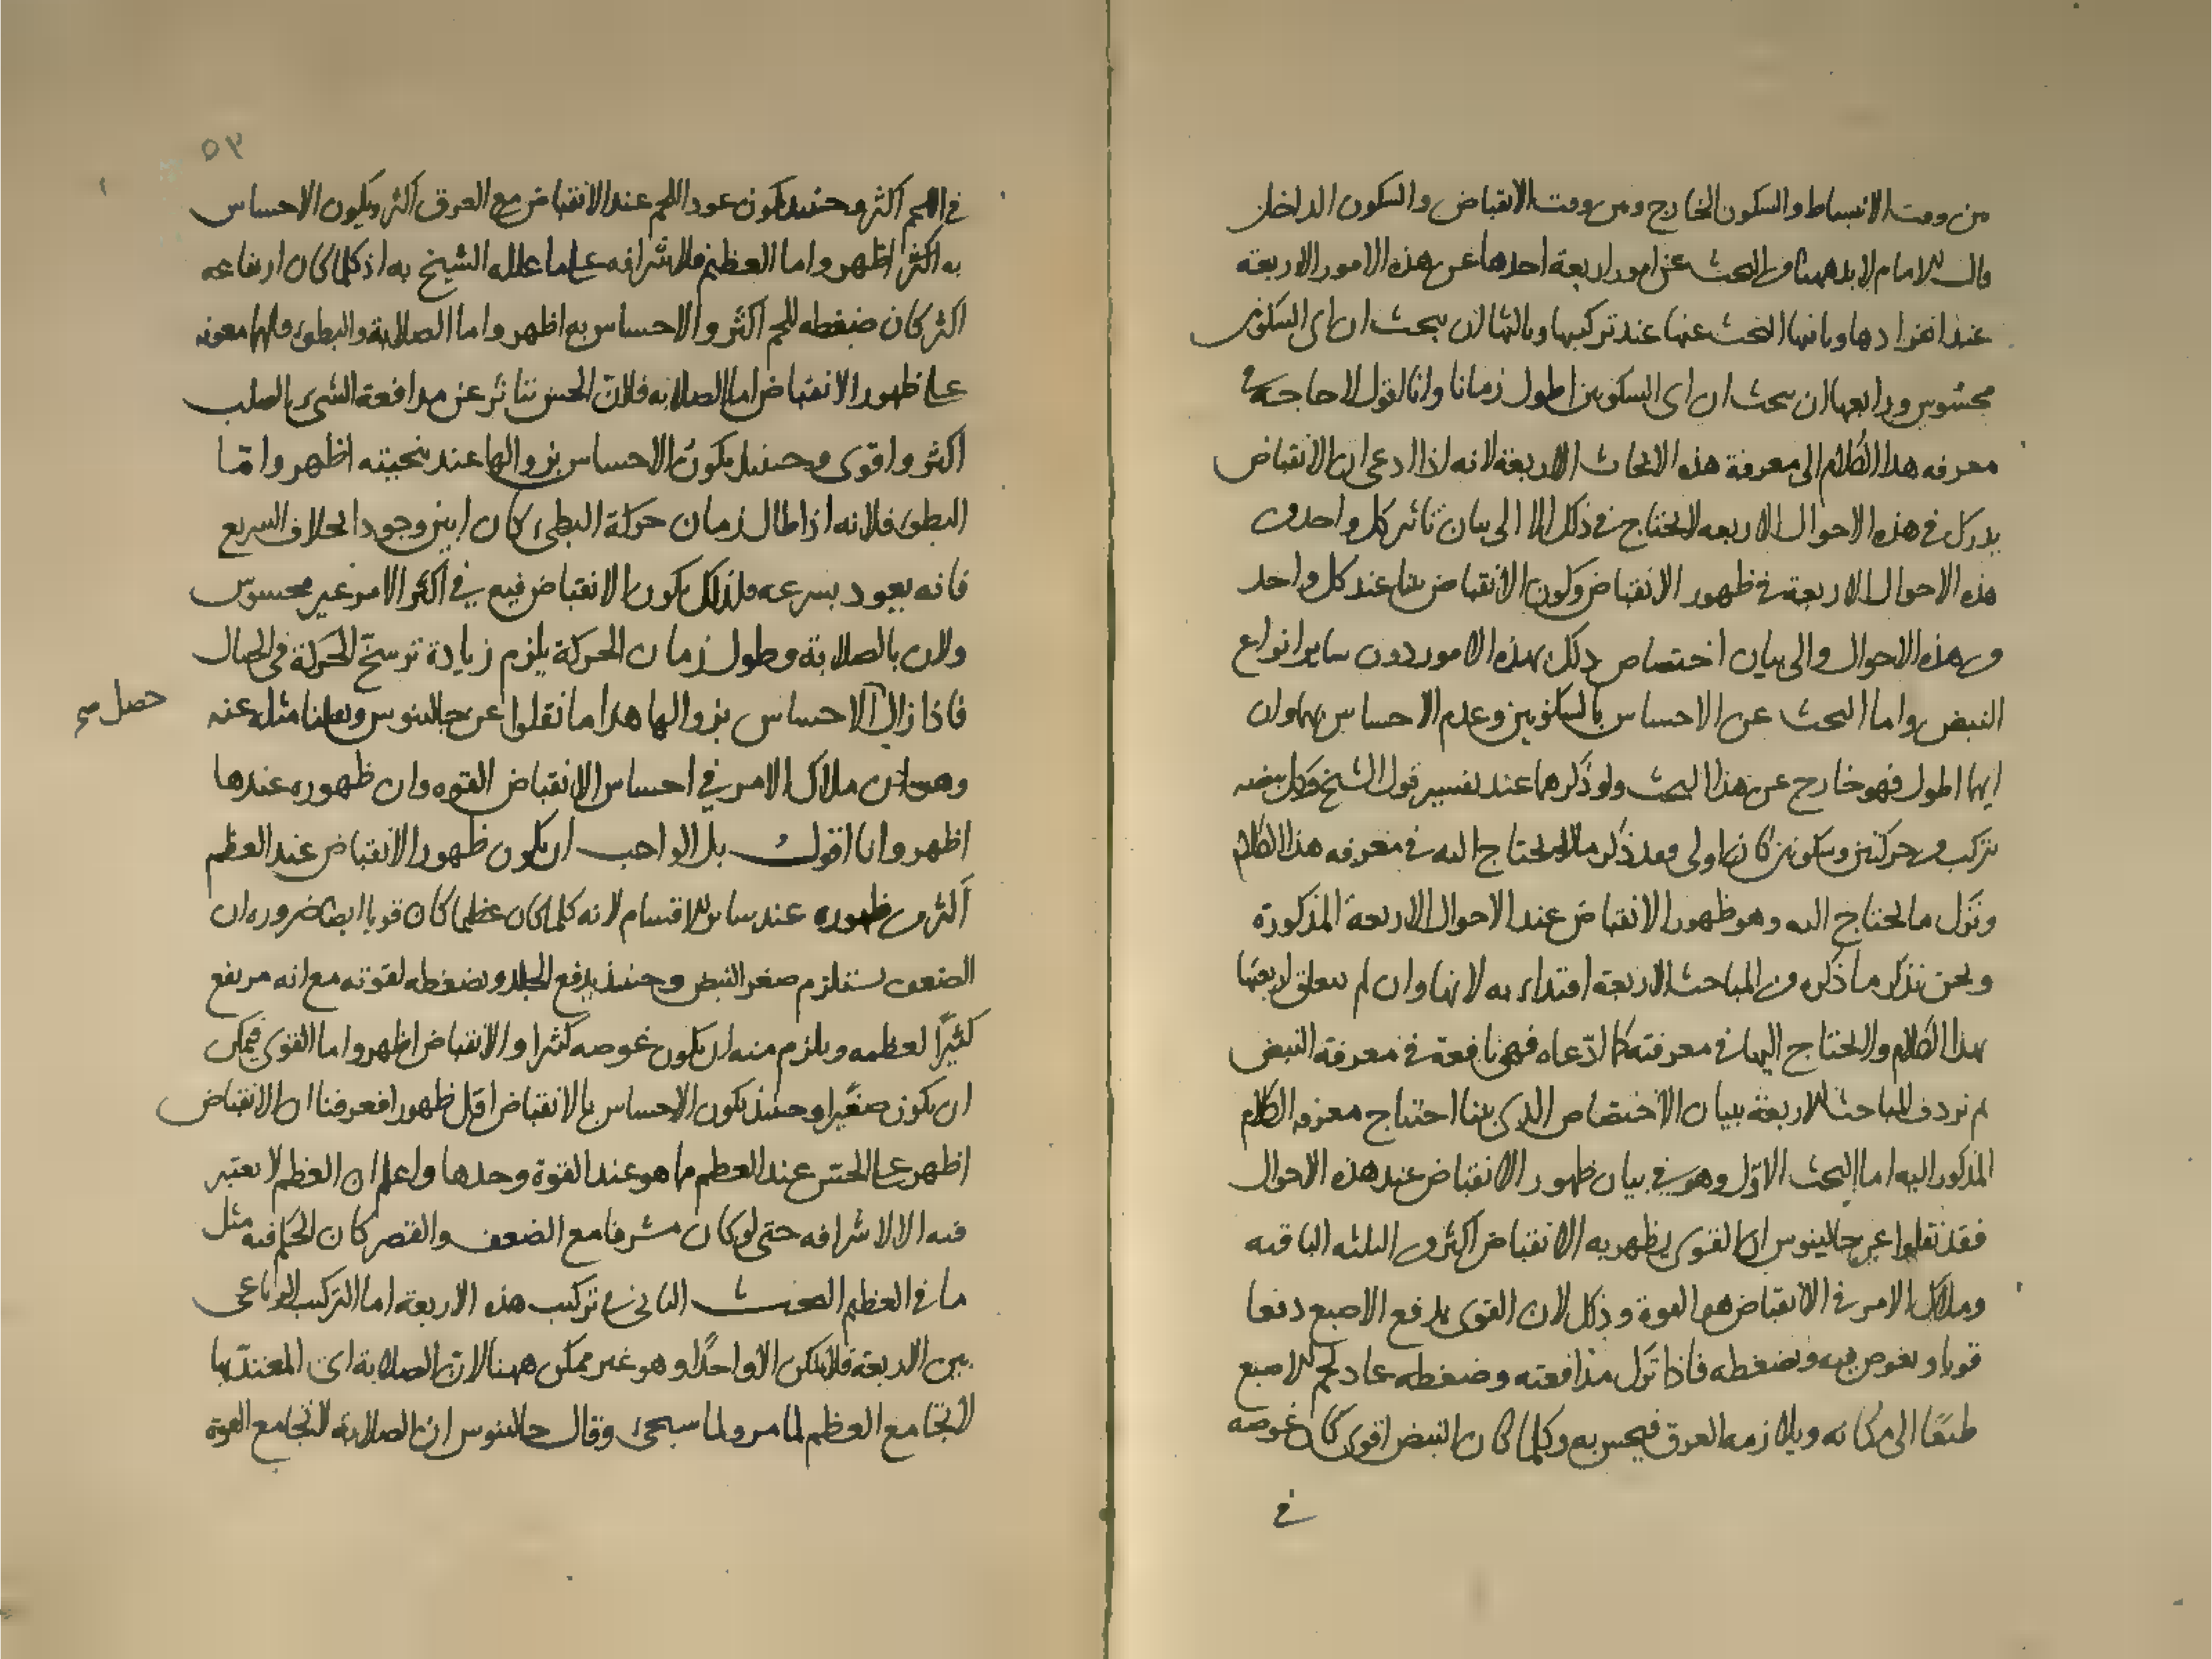 من وقت الانبساط والسكون الخارج ومن وقت الانقباض والسكون الداخل
قال الامام لا بد ههنا من البحث عن امور اربعة احدها عن هذه الامور الاربعة
عند انفرادها وثانيها البحث عنها عند تركيبها وثالثها ان يبحث ان اى السكونين
محسوس ورابعها ان يبحث ان اى السكونين اطول زمانا وانا اقول لا حاجة فى
معرفه هذا الكلام الى معرفة هذه الابحاث الاربعة لانه اذا ادعى ان الانقباض
يدرك فى هذه الاحوال الاربعه لا يحتاج فى ذلك الا الى بيان تاثير كل واحد من
هذه الاحوال الاربعة فى ظهور الانقباض وكون الانقباض بينا عند كل واحد
من هذه الاحوال والى بيان اختصاص ذلك بهذه الامور دون ساير انواع
النبض واما البحث عن الاحساس بالسكونين وعدم الاحساس بهما وان
ايهما اطول فهو خارج عن هذا البحث ولو ذكرهما عند تفسير قول الشيخ وكل نبضه
تتركب من حركتين وسكونين كان اولى فقد ذكر ما لا يحتاج اليه فى معرفه هذا الكلام
وترك ما يحتاج اليه وهو ظهور الانقباض عند الاحوال الاربعة المذكورة
ونحن نذكر ما ذكره من المباحث الاربعة اقتداء به لانها وان لم يتعلق اربعتها
بهذا الكلام ولا يحتاج اليها فى معرفته كما ادّعاه فهى نافعة فى معرفة النبض
ثم نردف المباحث الاربعة ببيان الاختصاص الذى بينا احتياج معرفه الكلام
المذكور اليه اما البحث الاوّل وهو فى بيان ظهور الانقباض عند هذه الاحوال
فقد نقلوا عن جالينوس ان القوى يظهر به الانقباض اكثر من الثلثه الباقيه
وملاك الامر فى الانقباض هو القوة وذلك لان القوى يدفع الاصبع دفعا
قويا ويغوص فيه ويضغطه فاذا ترك مدافعته وضغطه عاد لحم الاصبع
طبعًا الى مكانه ويلازمه العرق فيحس به وكلما كان النبض اقوى كان غوصه
فى
٥٣
فى اللحم اكثر وحينئذ يكون عود اللحم عند الانقباض مع العرق اكثر ويكون الاحساس
به اكثر اظهر واما العظيم فلاشرافه على ما علله الشيخ به اذ كلما كان ارتفاعه
اكثر كان ضغطه للحم اكثر والاحساس به اظهر واما الصلابة والبطؤ فلهما معونه
على ظهور الانقباض اما الصلابه فلانّ الحس يتاثر عن مدافعة الشىء الصلب
اكثر واقوى وحينئذ يكون الاحساس بزوالها عند تنحيته اظهر وامّا
البطؤ فلانه اذا طال زمان حركة البطىء كان ابين وجودا بخلاف السريع
فانه يعود بسرعه فلذلك يكون الانقباض فيه فى اكثر الامر غير محسوس
ولان بالصلابة وطول زمان الحركة يلزم زيادة ترسخ الحركة فى الخيال
فاذا زال الاحساس بزوالها هذا ما نقلوا عن جالينوس ونقلنا مثله عنه
حصل صح
وهو ان ملاك الامر فى احساس الانقباض القوه وان ظهوره عندها
اظهر وانا اقول بل الواجب ان يكون ظهور الانقباض عند العظم
اكثر من ظهوره عند ساير الاقسام لانه كلما كان عظيما كان قويا ايضا ضروره ان
الضعف يستلزم صغر النبض وحينئذ يدفع الجلد ويضغطه لقوته مع انه مرتفع
كثيرًا لعظمه ويلزم منه ان يكون غوصه كثيرا والانقباض اظهر واما القوى فيمكن
ان يكون صغيرا وحينئذ يكون الاحساس بالانقباض اقل ظهورا فعرفنا ان الانقباض
اظهر على الحس عند العظم مما هو عند القوة وحدها واعلم ان العظم لا يعتبر
فيه الا الاشرافه حتى لو كان مشرفا مع الضعف والقصر كان الحكم فيه مثل
ما فى العظيم البحث الثانى فى تركيب هذه الاربعة اما التركيب الرباعى
بين الاربعة فلا يمكن الا واحدًا وهو غير ممكن ههنا لان الصلابة اى المعتدّ بها
لا تجامع العظم لما مر ولما سيجىء وقال جالينوس ان الصلابة لا تجامع القوة